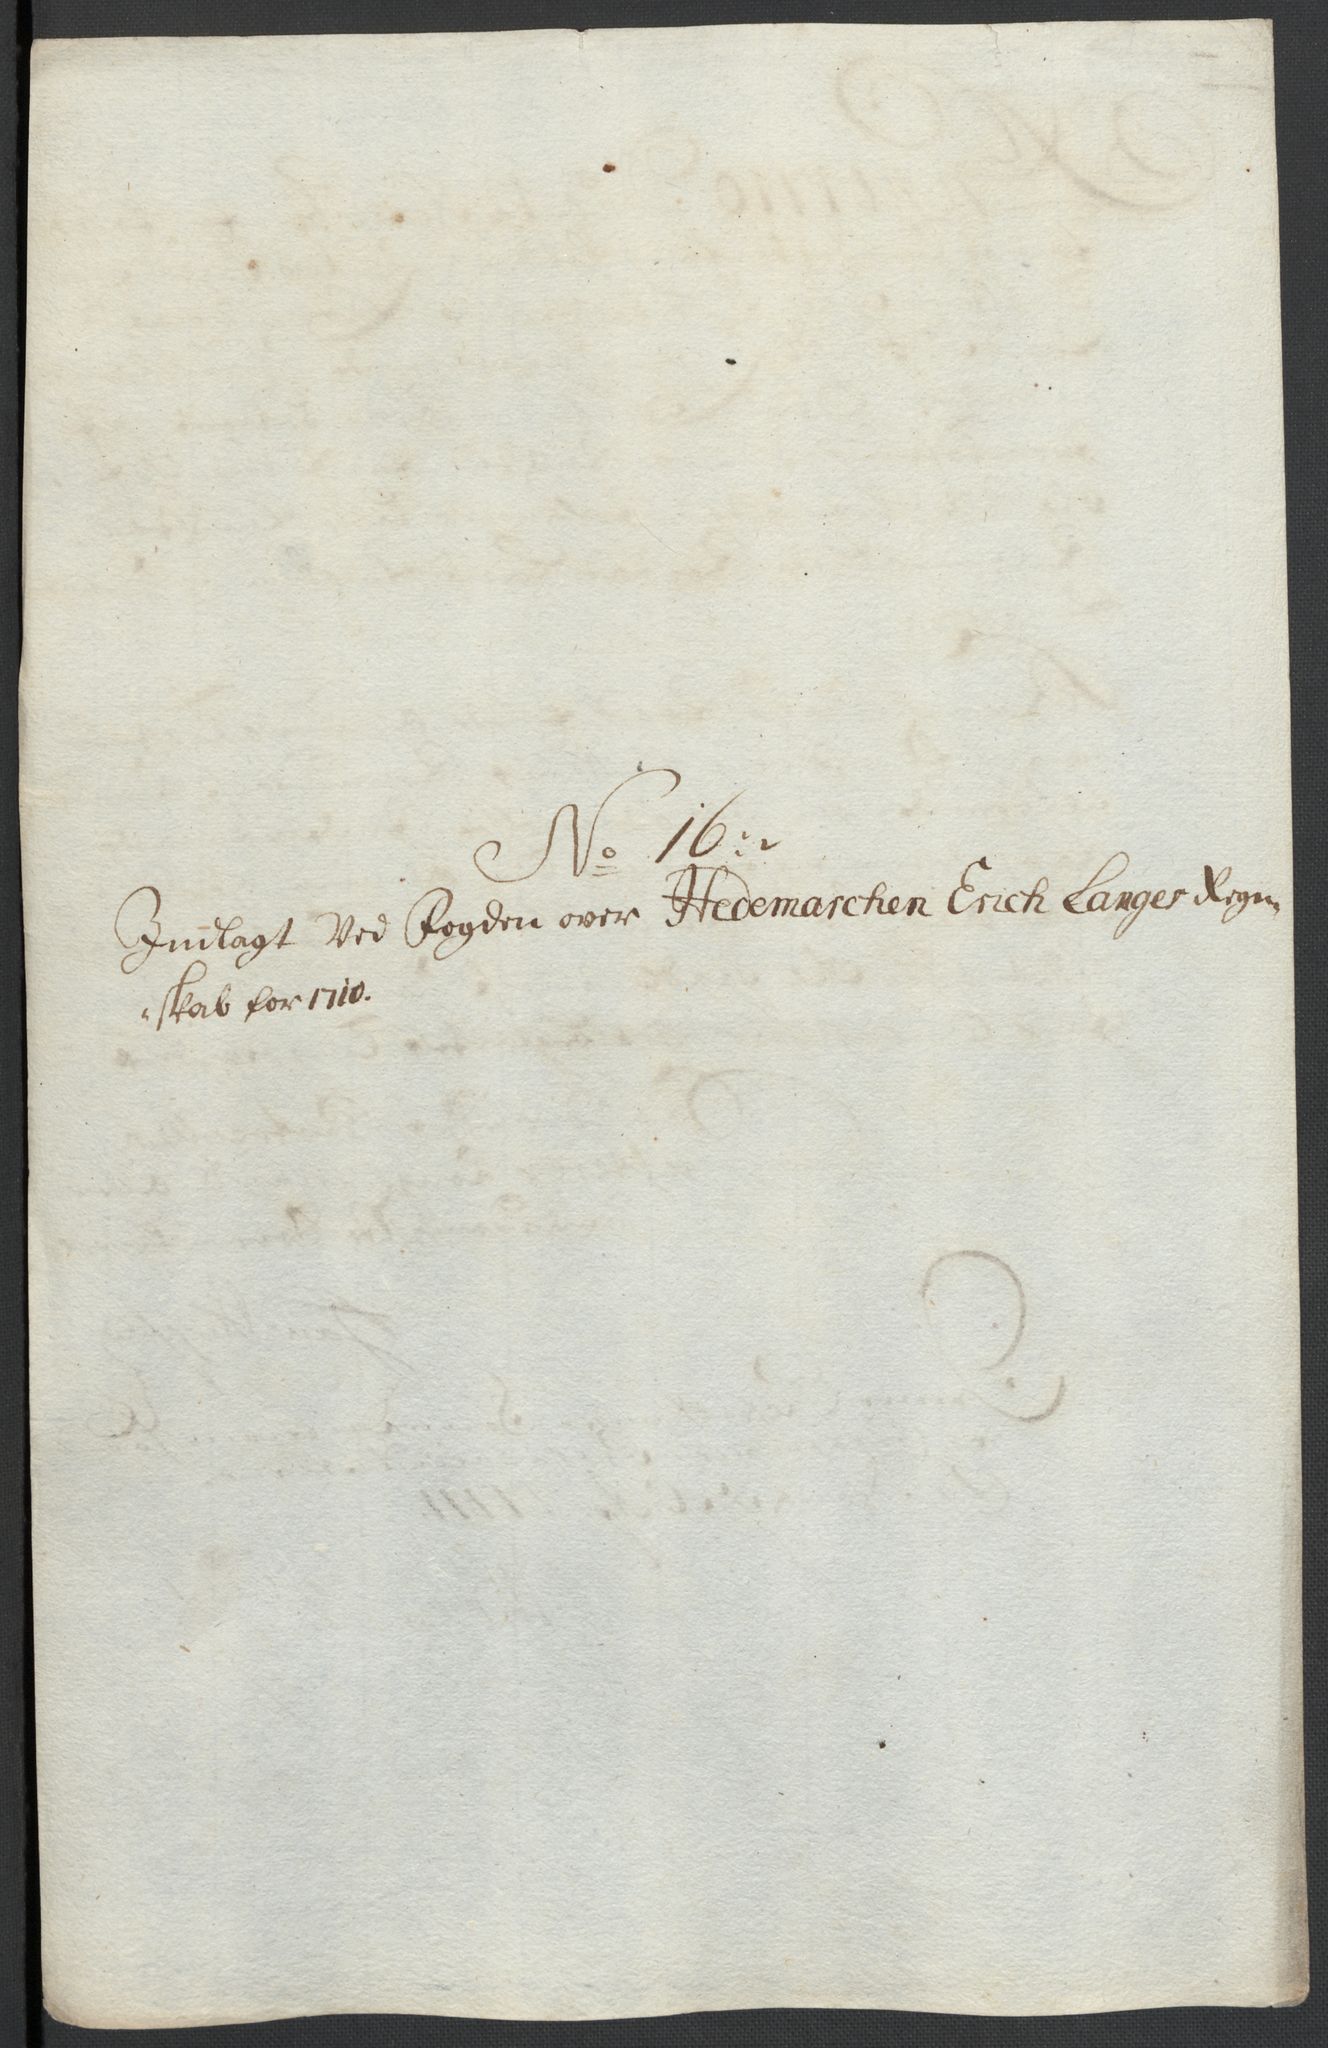 No 16:
Indlagt Ved Fogden over Hedemarchen Erich Langes Regn-
-skab for 1710.